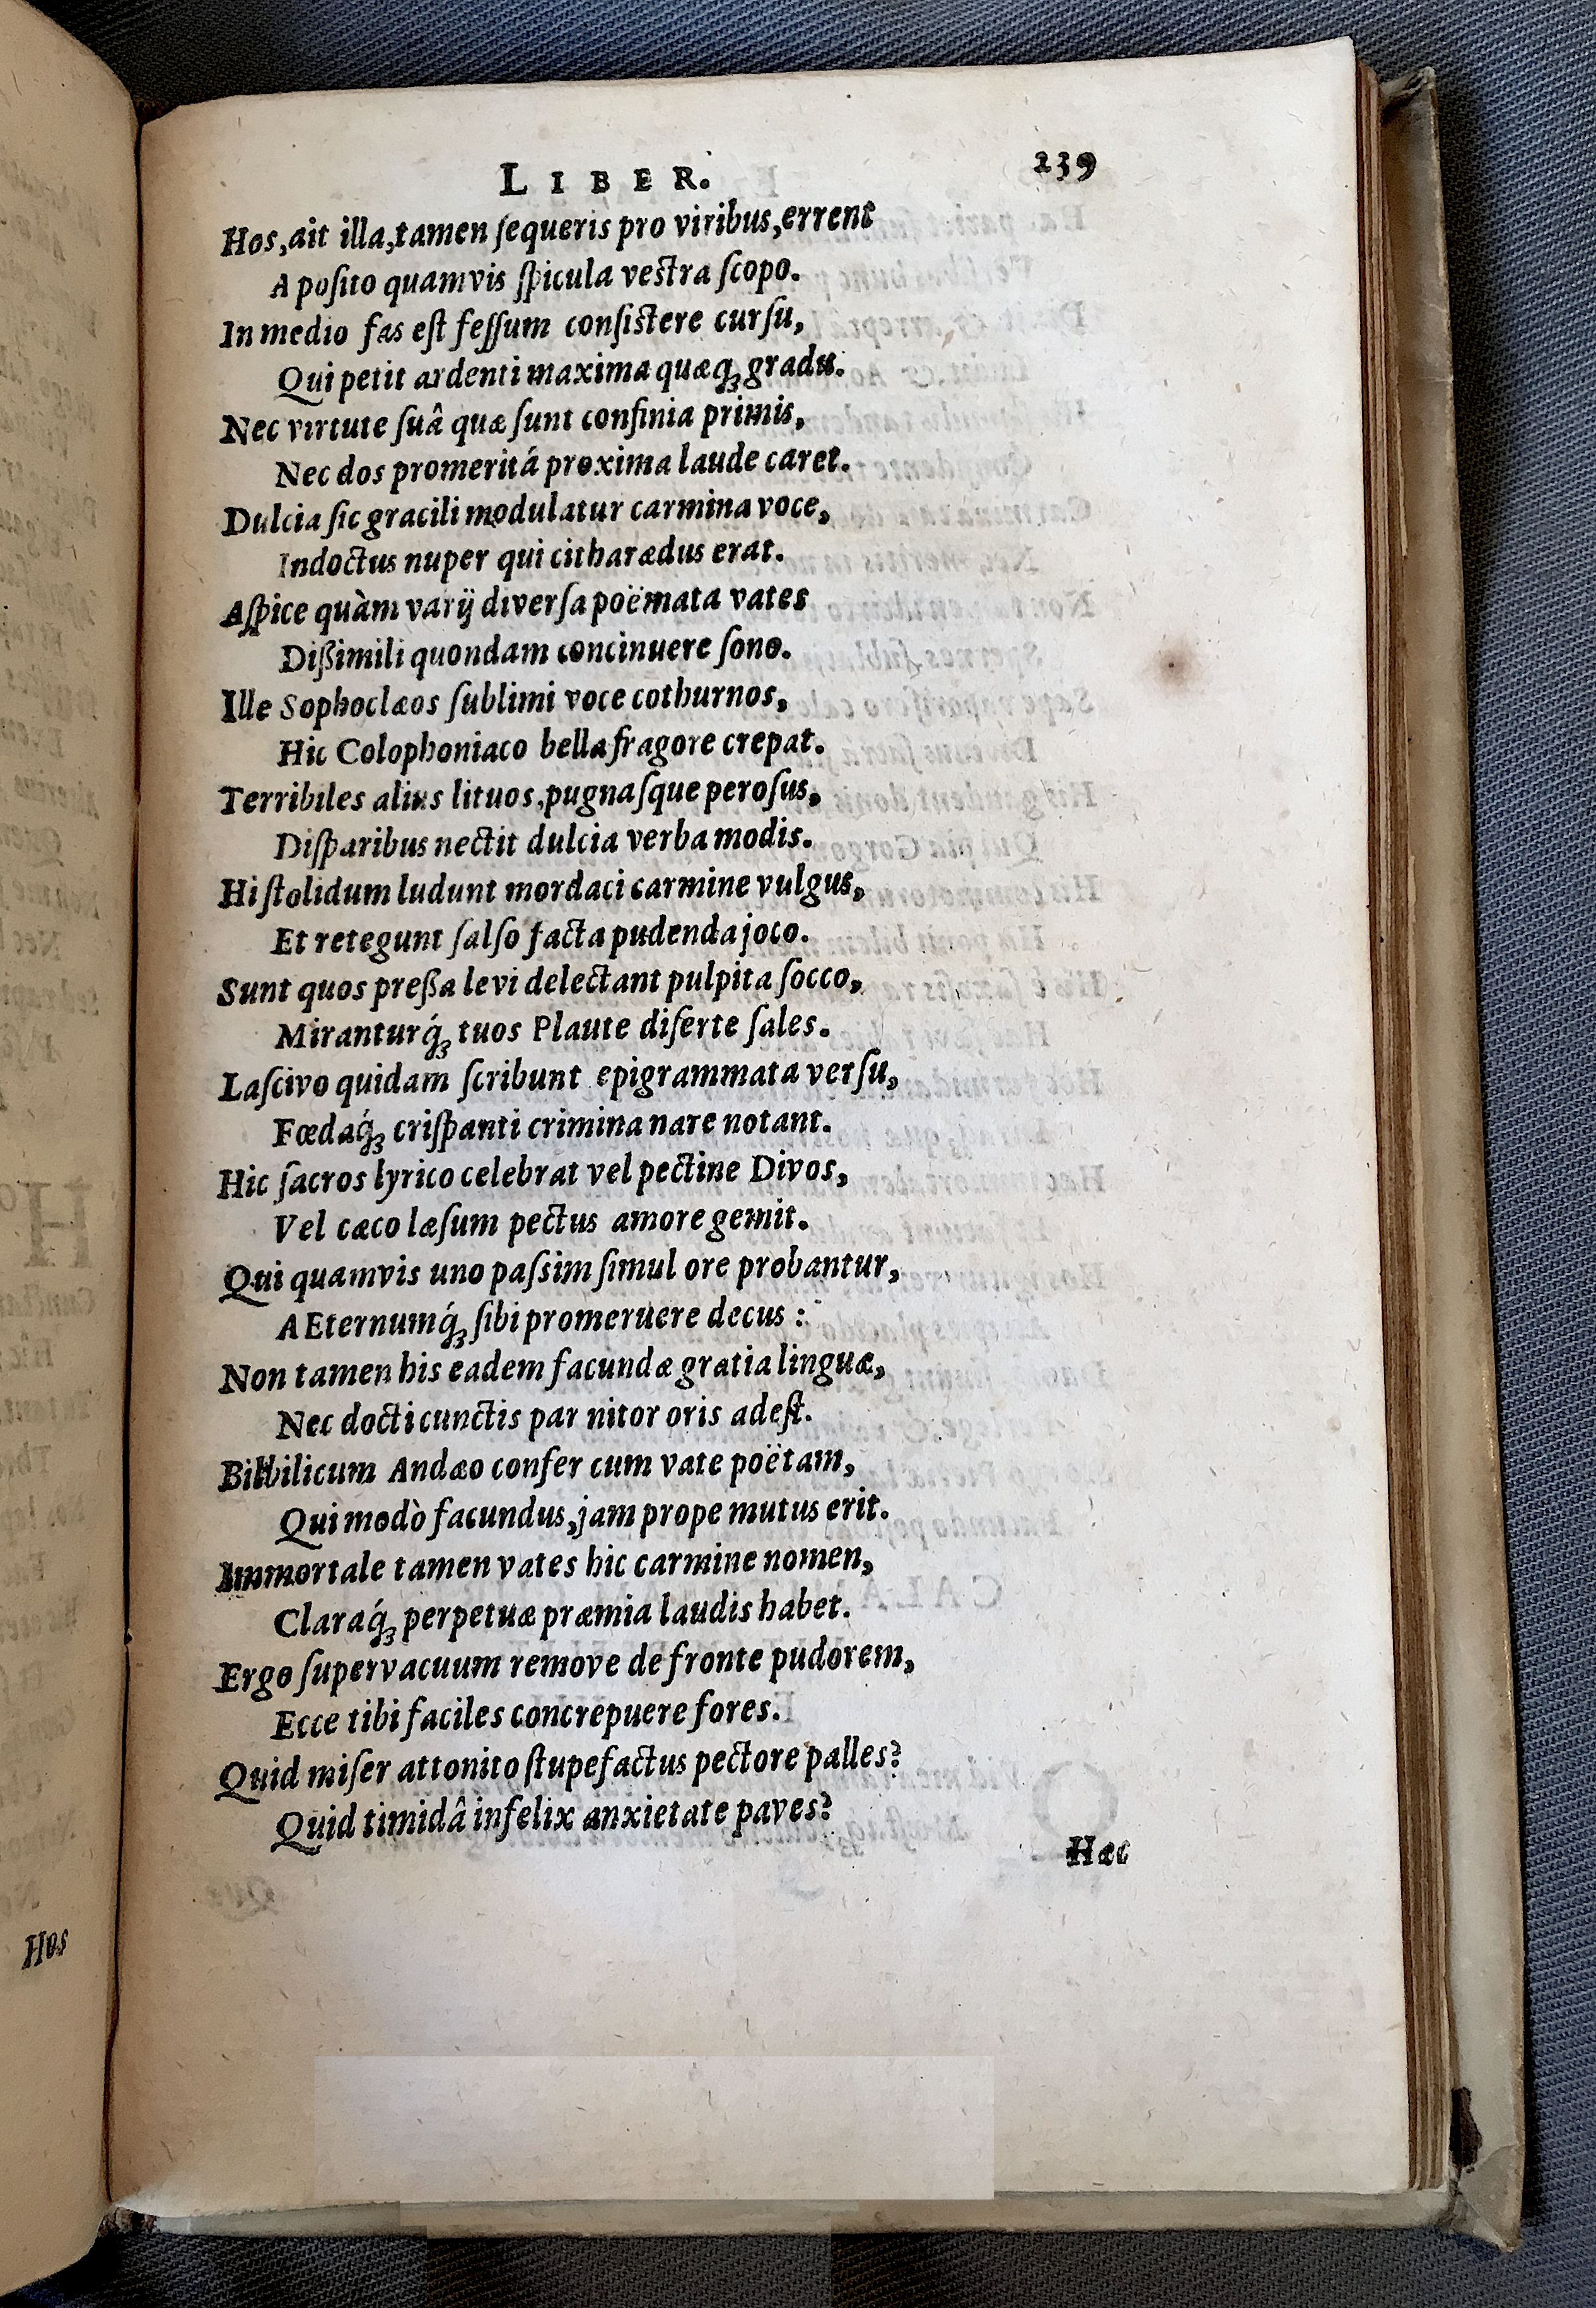 LIBER. 239
Hos, ait illa, tamen ſequeris pro viribus, errent
A poſito quamvis ſpicula veſtra ſcopo.
In medio fas eſt feſſum conſiſtere curſu,
Qui petit ardenti maxima quæq́ꝫ gradu.
Nec virtute ſuâ quæ ſunt confinia primis,
Nec dos promeritá proxima laude caret.
Dulcia ſic gracili modulatur carmina voce,
Indoctus nuper qui citharædus erat.
Aſpice quàm varij diverſa poëmata vates
Dißimili quondam concinuere ſono.
Ille Sophoclæos ſublimi voce cothurnos,
Hic Colophoniaco bella fragore crepat.
Terribiles alius lituos, pugnaſque peroſus,
Diſparibus nectit dulcia verba modis.
Hi ſtolidum ludunt mordaci carmine vulgus,
Et retegunt ſalſo facta pudenda joco.
Sunt quos preßa levi delectant pulpita ſocco,
Miranturq́ꝫ tuos Plaute diſerte ſales.
Laſcivo quidam ſcribunt epigrammata verſu,
Fœdaq́ꝫ criſpanti crimina nare notant.
Hic ſacros lyrico celebrat vel pectine Divos,
Vel cæco læſum pectus amore gemit.
Qui quamvis uno paſsim ſimul ore probantur,
AEternumq́ꝫ ſibi promeruere decus:
Non tamen his eadem facundæ gratia linguæ,
Nec docti cunctis par nitor oris adeſt.
Bilbilicum Andæo confer cum vate poëtam,
Qui modò facundus, jam prope mutus erit.
Immortale tamen vates hic carmine nomen,
Claraq́ꝫ perpetuæ præmia laudis habet.
Ergo ſupervacuum remove de fronte pudorem,
Ecce tibi faciles concrepuere fores.
Quid miſer attonito ſtupefactus pectore palles?
Quid timidâ infelix anxietate paves?
Hæc
Hos